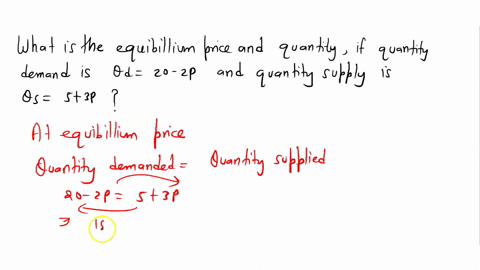 What is the equibillium price and quantity, if quantity
demand is Qd = 20-2P and quantity supply is
Qs = 5+3P ?
At equibillium price
Quantity demanded = Quantity supplied
20-2P = 5+3P
⇒ 15